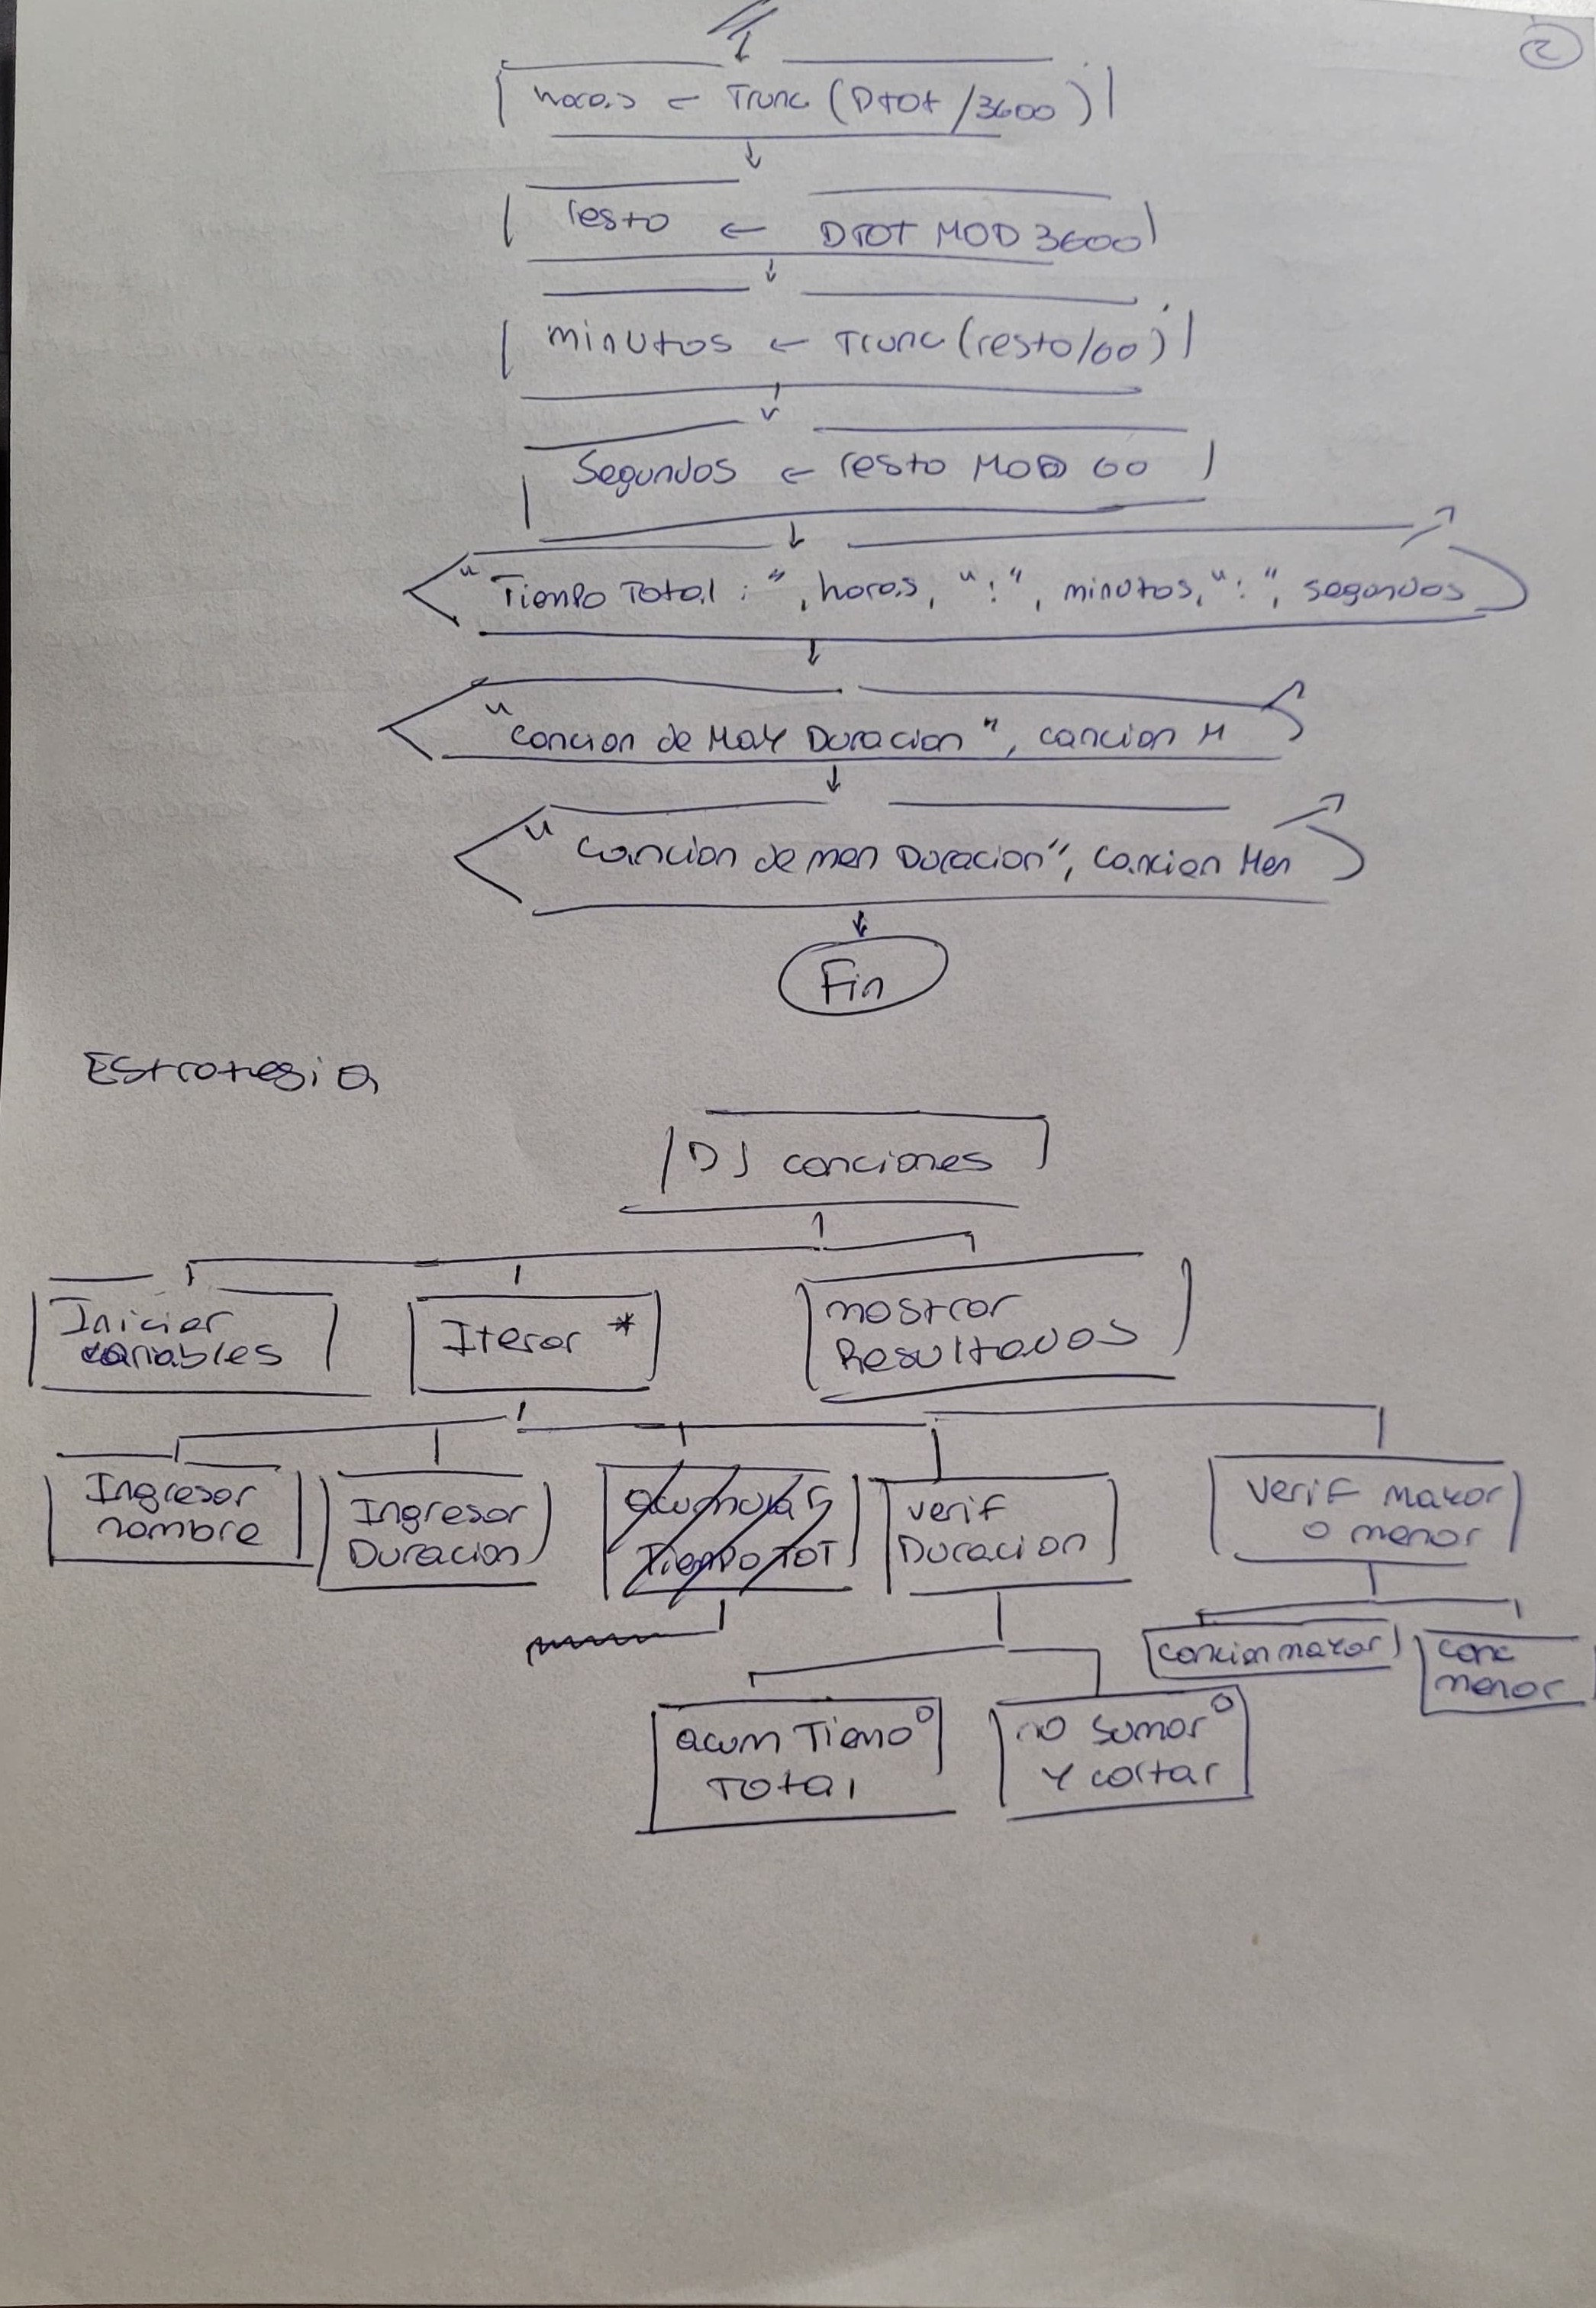 2
horas ← Trunc (DTOT /3600)
resto ← DTOT MOD 3600
minutos ← Trunc (resto/60)
Segundos ← resto MOD 60
"Tiempo Total : ", horas, ":", minutos, ":", segundos
"Cancion de MaY Duracion", cancion M
"Cancion de men Duracion", Cancion Men
Fin
Estrategia
DJ canciones
Iniciar
variables
Iterar *
mostrar
Resultados
Ingresar
nombre
Ingresar
Duracion
acumular
Tiempo TOT
verif
Duracion
Verif mayor
o menor
cancion mayor
canc
menor
acum Tiemo o
Total
no sumar o
y cortar